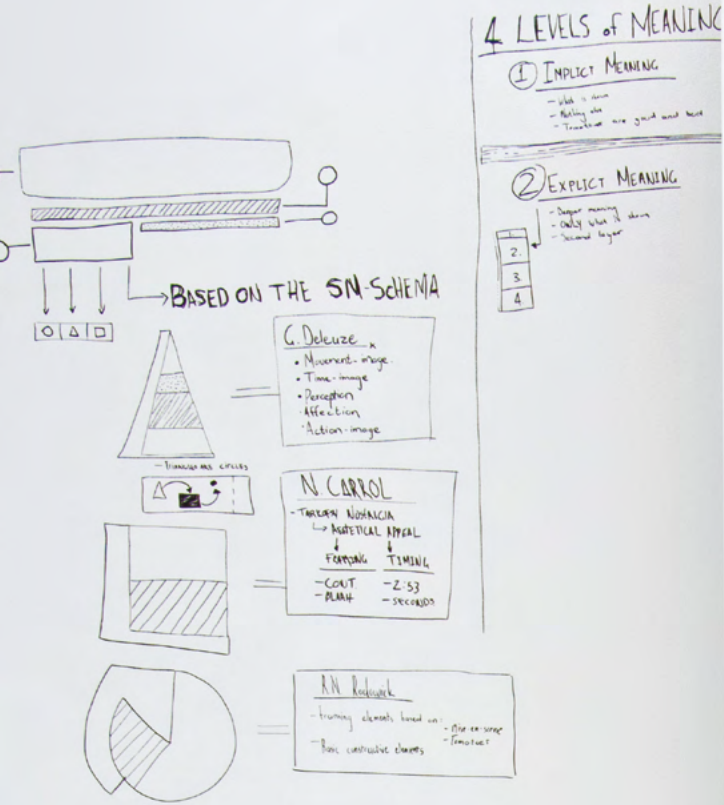 BASED ON THE SM-SCHEMA
G. Deleuze
• Movement-image.
• Time-image
• Perception
• Affection
• Action-image
- TRIANGLES ARE CIRCLES
N. CARROL
- TARKOFSKY NOSTALGIA
↳ AESTETICAL APPEAL
FRAMING TIMING
- CONT. - 2:53
- BLAAH - SECONDS
R.N. Rodowick
- framing elements based on: - Mise-en-scene
- Tomatoes
- Basic constructive elements
4 LEVELS of MEANING
1 IMPLICT MEANING
- What is shown
- Nothing else
- Tomatoes are good and bad
2 EXPLICT MEANING
- Deeper meaning
- ONLY what is shown
- Second layer
1.
2.
3.
4.